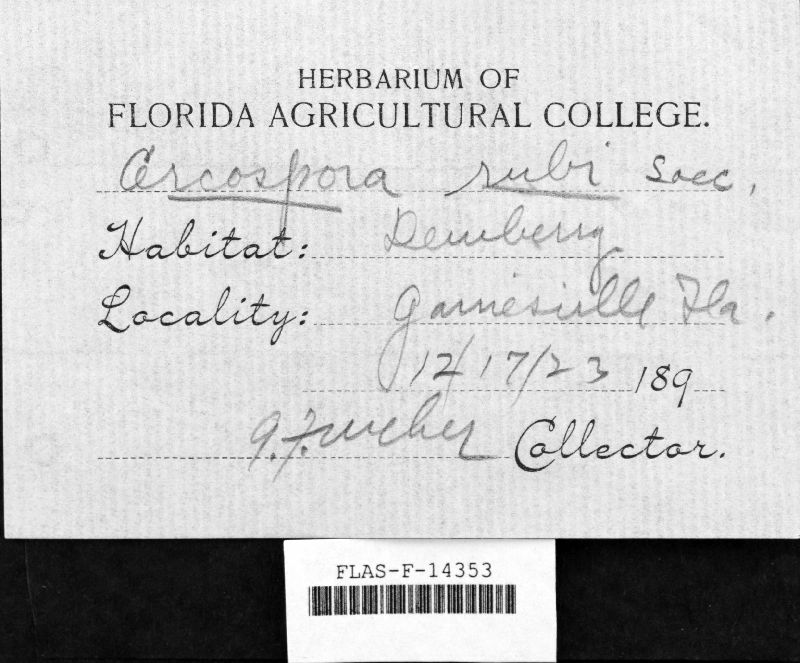 HERBARIUM OF
FLORIDA AGRICULTURAL COLLEGE.
Cercospora rubi Sacc.
Habitat: Dewberry
Locality: Gainesville Fla.
12/17/23 189
G.F. Weber Collector.
FLAS-F-14353